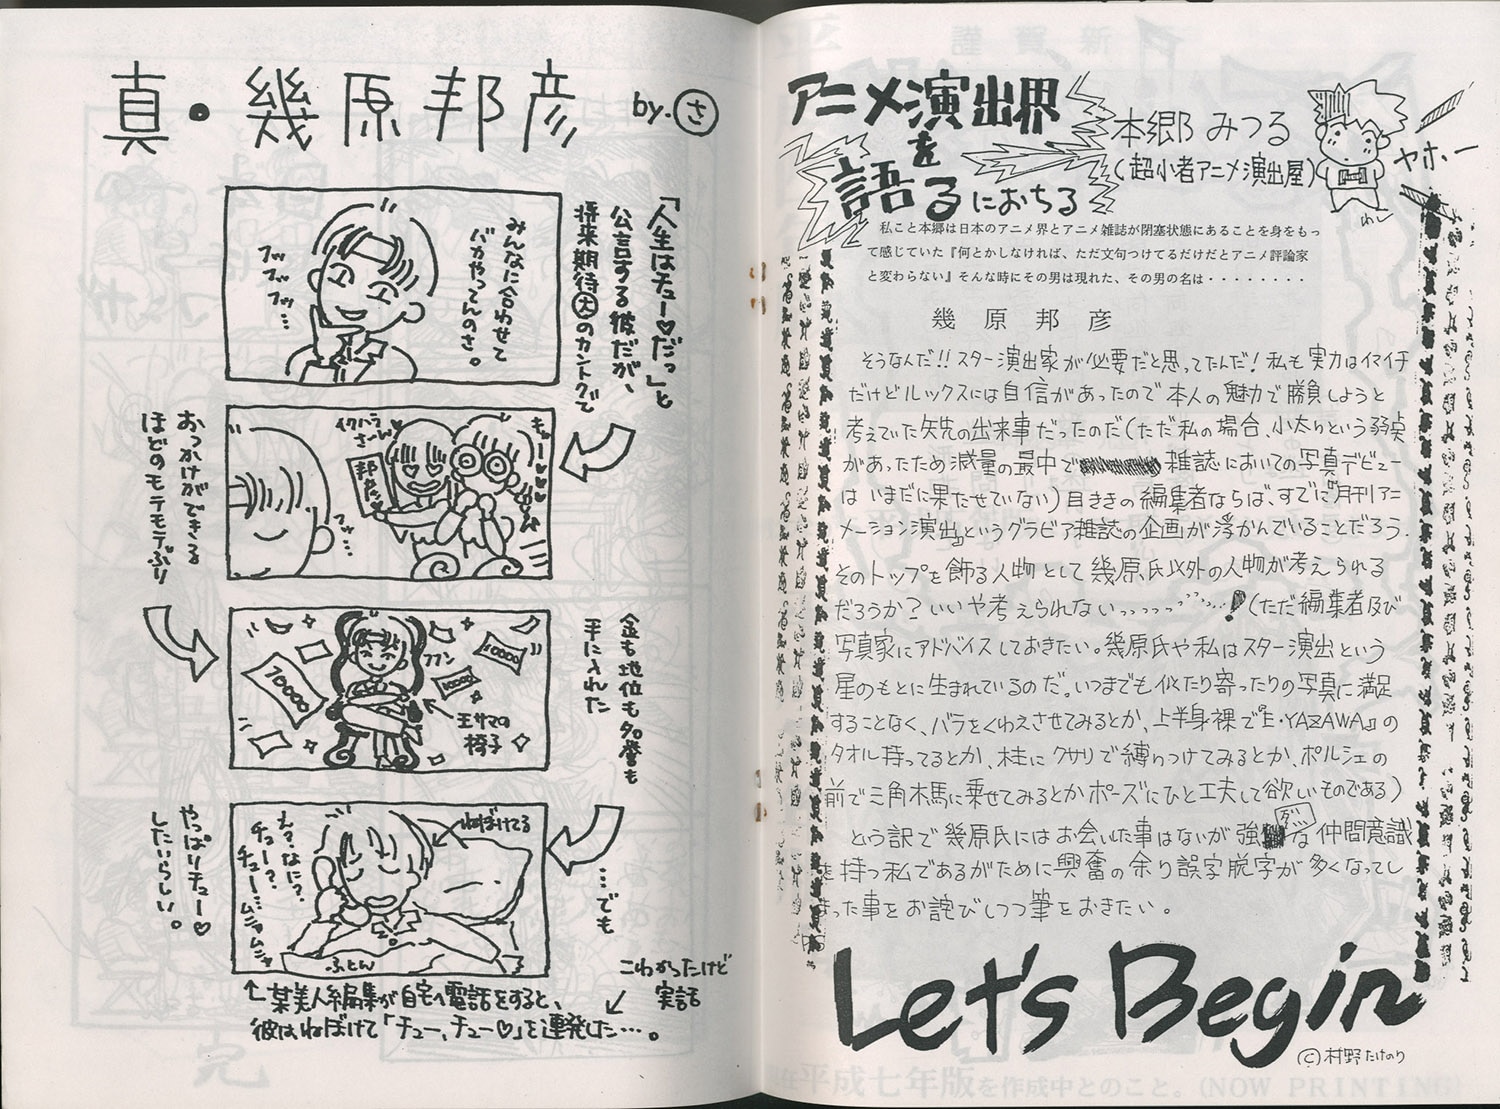 アニメ演出界
を
語るにおちる
本郷みつる
(超小者アニメ演出屋)
ヤホー
わし
私こと本郷は日本のアニメ界とアニメ雑誌が閉塞状態にあることを身をもっ
て感じていた『何とかしなければ、ただ文句つけてるだけだとアニメ評論家
と変わらない』そんな時にその男は現れた、その男の名は・・・・・・・・
幾原邦彦
そうなんだ!!スター演出家が必要だと思ってたんだ!私も実力はイマイチ
だけどルックスには自信があったので本人の魅力で勝負しようと
考えていた矢先の出来事だったのだ(ただ私の場合、小太りという弱点
があったため減量の最中で雑誌においての写真デビュー
はいまだに果たせていない)目ききの編集者ならば、すでに『月刊アニ
メーション演出』というグラビア雑誌の企画が浮かんでいることだろう.
そのトップを飾る人物として幾原氏以外の人物が考えられる
だろうか?いいや考えられないっっっっっ……!(ただ編集者及び
写真家にアドバイスしておきたい。幾原氏や私はスター演出という
星のもとに生まれているのだ。いつまでも似たり寄ったりの写真に満足
することなく、バラをくわえさせてみるとか、上半身裸で『E・YAZAWA』の
タオル持ってるとか、柱にクサリで縛りつけてみるとか、ポルシェの
前で三角木馬に乗せてみるとかポーズにひと工夫して欲しいものである)
という訳で幾原氏にはお会いした事はないが強烈な仲間意識
を持つ私であるがために興奮の余り誤字脱字が多くなってし
まった事をお詫びしつつ筆をおきたい。
Let's Begin
©村野たけのり
真・幾原邦彦
by.さ
「人生はチュー♡だっ」と
公言する彼だが、
将来期待大のカントクで
みんなに合わせて
バカやってんのさ。
フッ
フッ
フッ…
おっかけができる
ほどのモテモテぶり
イクハラ
さーん
邦彦
フッ…
金も地位も名誉も
手に入れた
10000
10000
10000
フフン
王サマの
椅子
…でも
やっぱりチュー♡
したいらしい。
ねぼけてる
え?なに?
チュー?
チュー…
ムニャムニャ
ふとん
こわかったけど
実話
↑某美人編集が自宅へ電話をすると、
彼は、ねぼけて「チュー、チュー♡」を連発した…。
謹賀新
平
完
在平成七年版を作成中とのこと。(NOW PRINTING)